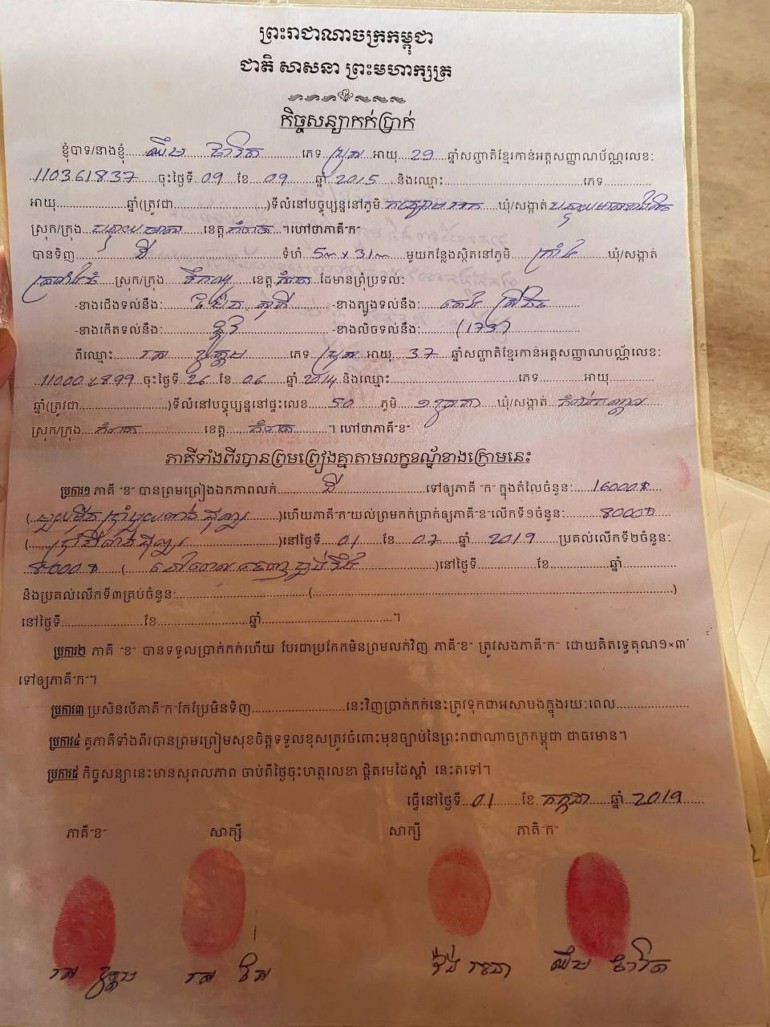 ព្រះរាជាណាចក្រកម្ពុជា
ជាតិ សាសនា ព្រះមហាក្សត្រ
កិច្ចសន្យាកក់ប្រាក់
ខ្ញុំបាទ/នាងខ្ញុំ ឈឹម ភេទ ប្រុស អាយុ 29 ឆ្នាំសញ្ជាតិខ្មែរកាន់អត្តសញ្ញាណប័ណ្ណលេខ:
110361837 ចុះថ្ងៃទី 09 ខែ 09 ឆ្នាំ 2015 និងឈ្មោះ ភេទ
អាយុ ឆ្នាំ(ត្រូវជា )ទីលំនៅបច្ចុប្បន្ននៅភូមិ ឃុំ/សង្កាត់
ស្រុក/ក្រុង ខេត្ត កំពត ។ហៅថាភាគី"ក"
បានទិញ ដី ទំហំ 5m x 31m មួយកន្លែងស្ថិតនៅភូមិ ក្រាំង ឃុំ/សង្កាត់
ស្រុក/ក្រុង ទឹកឈូ ខេត្ត កំពត ដែមានព្រំប្រទល់:
-ខាងជើងទល់នឹង: -ខាងត្បូងទល់នឹង:
-ខាងកើតទល់នឹង: ផ្លូវ -ខាងលិចទល់នឹង: (173)
ពីឈ្មោះ រស់ ភេទ ប្រុស អាយុ 37 ឆ្នាំសញ្ជាតិខ្មែរកាន់អត្តសញ្ញាណបណ្ណ័លេខ:
ចុះថ្ងៃទី 26 ខែ 06 ឆ្នាំ 2014 និងឈ្មោះ ភេទ អាយុ
ឆ្នាំ(ត្រូវជា )ទីលំនៅបច្ចុប្បន្ននៅផ្ទះលេខ 50 ភូមិ ឃុំ/សង្កាត់ កំពង់កណ្ដាល
ស្រុក/ក្រុង កំពត ខេត្ត កំពត ។ ហៅថាភាគី"ខ"
ភាគីទាំងពីរបានព្រមព្រៀងគ្នាតាមលក្ខខណ្ឌ័ខាងក្រោមនេះ
ប្រការ១ ភាគី "ខ" បានព្រមព្រៀងឯកភាពលក់ ដី ទៅឲ្យភាគី "ក" ក្នុងតំលៃចំនួន: 16000$
(មួយម៉ឺនប្រាំមួយពាន់ដុល្លារ )ហើយភាគី"ក"យល់ព្រមកក់ប្រាក់ឲ្យភាគី"ខ"លើកទី១ចំនួន: 8000$
(ប្រាំបីពាន់ដុល្លារ )នៅថ្ងៃទី 01 ខែ 07 ឆ្នាំ 2019 ប្រគល់លើកទី២ចំនួន:
8000$ ( )នៅថ្ងៃទី ខែ ឆ្នាំ
និងប្រគល់លើកទី៣គ្រប់ចំនួន: ( )
នៅថ្ងៃទី ខែ ឆ្នាំ ។
ប្រការ២ ភាគី "ខ" បានទទួលប្រាក់កក់ហើយ បែរជាប្រកែកមិនព្រមលក់វិញ ភាគី"ខ" ត្រូវសងភាគី"ក" ដោយគិតទ្វេគុណ១×៣
ទៅឲ្យភាគី"ក"។
ប្រការ៣ ប្រសិនបើភាគី"ក"កែប្រែមិនទិញ នេះវិញប្រាក់កក់នេះត្រូវទុកជាអសាបង់ក្នុងរយៈពេល
ប្រការ៤ គូភាគីទាំងពីរបានព្រមព្រៀមសុខចិត្តទទួលខុសត្រូវចំពោះមុខច្បាប់នៃព្រះរាជាណាចក្រកម្ពុជា ជាធរមាន។
ប្រការ៥ កិច្ចសន្យានេះមានសុពលភាព ចាប់ពីថ្ងៃចុះហត្ថលេខា ផ្តិតមេដៃស្តាំ នេះតទៅ។
ធ្វើនៅថ្ងៃទី 01 ខែ កក្កដា ឆ្នាំ 2019
ភាគី"ខ" សាក្សី សាក្សី ភាគី"ក"